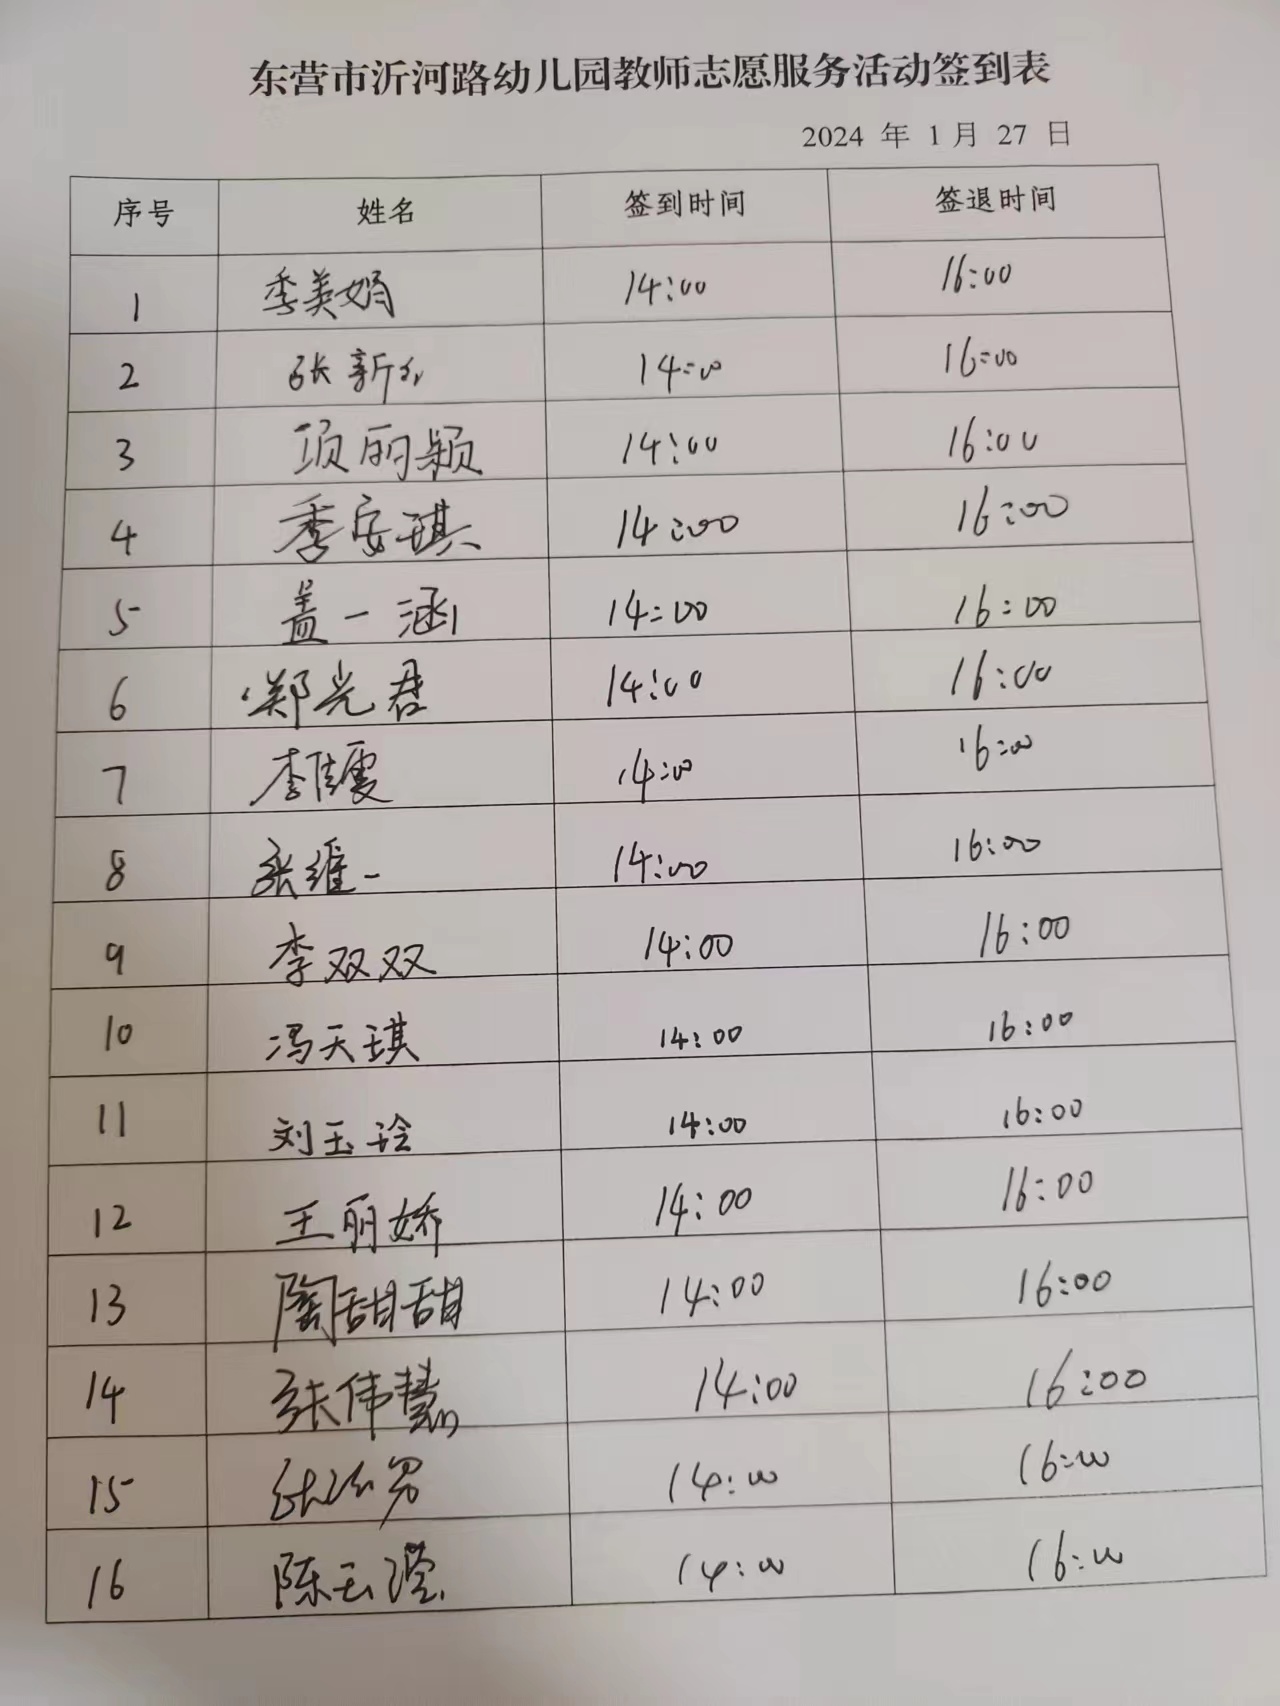 东营市沂河路幼儿园教师志愿服务活动签到表
2024 年 1 月 27 日
序号 姓名 签到时间 签退时间
1 季美娟 14:00 16:00
2 张新 14:00 16:00
3 项丽颖 14:00 16:00
4 季安琪 14:00 16:00
5 盖一涵 14:00 16:00
6 郑光君 14:00 16:00
7 李佳霞 14:00 16:00
8 张维一 14:00 16:00
9 李双双 14:00 16:00
10 冯天琪 14:00 16:00
11 刘玉玲 14:00 16:00
12 王丽娇 14:00 16:00
13 陶甜甜 14:00 16:00
14 张伟慧 14:00 16:00
15 14:00 16:00
16 陈玉滢 14:00 16:00